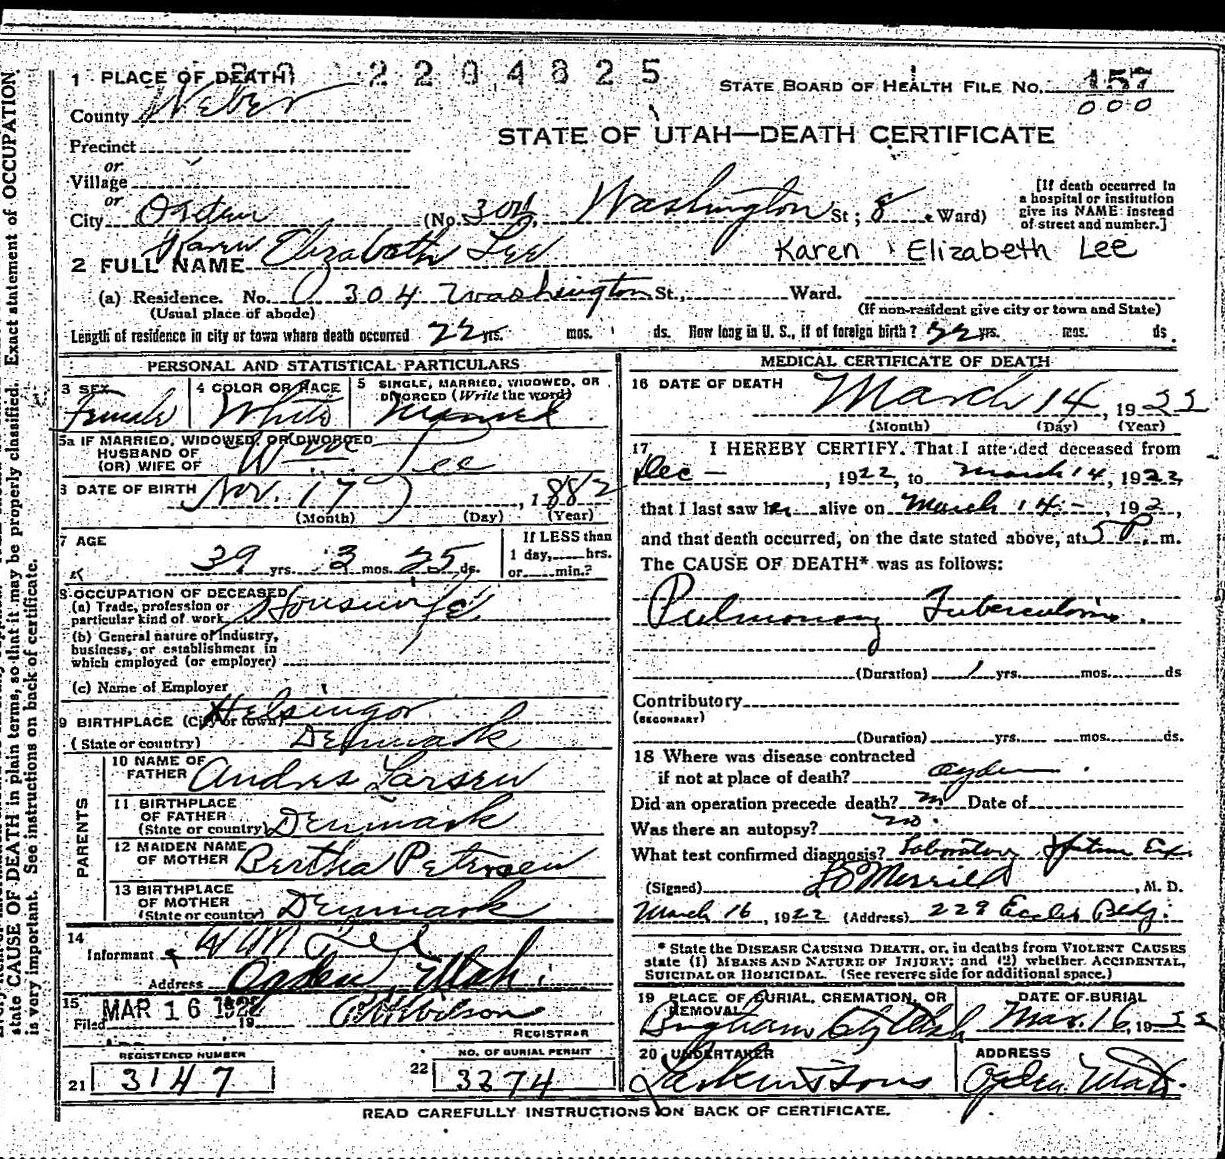 1 PLACE OF DEATH 2204825
STATE BOARD OF HEALTH FILE NO. 157
County Weber 000
STATE OF UTAH—DEATH CERTIFICATE
Precinct
or
Village
or
City Ogden (No. 304 Washington St; 8 Ward)
[If death occurred in
a hospital or institution
give its NAME instead
of street and number.]
2 FULL NAME Karen Elizabeth Lee Karen Elizabeth Lee
(a) Residence. No. 304 Washington St., Ward.
(Usual place of abode) (If non-resident give city or town and State)
Length of residence in city or town where death occurred 22 yrs. mos. ds. How long in U. S., if of foreign birth? 22 yrs. mos. ds.
PERSONAL AND STATISTICAL PARTICULARS
3 SEX Female
4 COLOR OR RACE White
5 SINGLE, MARRIED, WIDOWED, OR
DIVORCED (Write the word) Married
5a IF MARRIED, WIDOWED, OR DIVORCED
HUSBAND OF
(OR) WIFE OF Lee
DATE OF BIRTH Nov. 17, 1882
(Month) (Day) (Year)
7 AGE 39 yrs. 3 mos. 25 ds.
If LESS than
1 day, hrs.
or min.?
8 OCCUPATION OF DECEASED
(a) Trade, profession or
particular kind of work Housewife
(b) General nature of industry,
business, or establishment in
which employed (or employer)
(c) Name of Employer
9 BIRTHPLACE (City or town) Helsingor
(State or country) Denmark
PARENTS
10 NAME OF
FATHER Andres Larsen
11 BIRTHPLACE
OF FATHER
(State or country) Denmark
12 MAIDEN NAME
OF MOTHER Bertha Petersen
13 BIRTHPLACE
OF MOTHER
(State or country) Denmark
14
Informant Wm Lee
Address Ogden, Utah
15
Filed MAR 16 1922 19 Wilson
REGISTRAR
REGISTERED NUMBER
21 3147
NO. OF BURIAL PERMIT
22 3274
MEDICAL CERTIFICATE OF DEATH
16 DATE OF DEATH
March 14, 1922
(Month) (Day) (Year)
17 I HEREBY CERTIFY. That I attended deceased from
Dec — , 1922, to March 14, 1922,
that I last saw her alive on March 14 - , 192 ,
and that death occurred, on the date stated above, at 5 P. m.
The CAUSE OF DEATH* was as follows:
Pulmonary Tuberculosis.
(Duration) 1 yrs. mos. ds
Contributory
(SECONDARY)
(Duration) yrs. mos. ds.
18 Where was disease contracted
if not at place of death? Ogden
Did an operation precede death? no Date of
Was there an autopsy? no.
What test confirmed diagnosis? Laboratory Sputum Ex.
(Signed) Merrill, M. D.
March 16, 1922 (Address) 229 Eccles Bldg.
* State the DISEASE CAUSING DEATH, or, in deaths from VIOLENT CAUSES
state (1) MEANS AND NATURE OF INJURY; and (2) whether ACCIDENTAL,
SUICIDAL OR HOMICIDAL. (See reverse side for additional space.)
19 PLACE OF BURIAL, CREMATION, OR
REMOVAL
Brigham City Utah
DATE OF BURIAL
Mar. 16, 1922
20 UNDERTAKER
Larkin & Sons
ADDRESS
Ogden Utah.
READ CAREFULLY INSTRUCTIONS ON BACK OF CERTIFICATE.
state CAUSE OF DEATH in plain terms, so that it may be properly classified. Exact statement of OCCUPATION
is very important. See instructions on back of certificate.